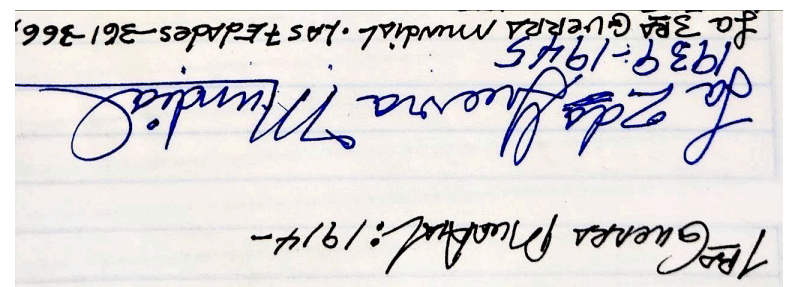 1RA Guerra Mundial: 1914-
La 2da Guerra Mundial
1939-1945
La 3RA GUERRA Mundial. LAS 7 EdAdes-361-366,